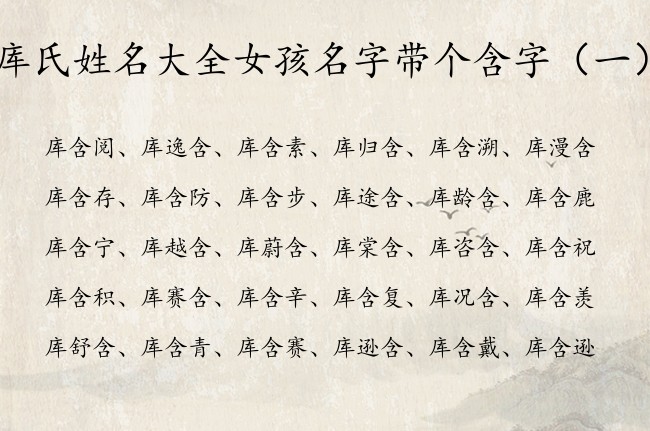 库氏姓名大全女孩名字带个含字（一）
库含阅、库逸含、库含素、库归含、库含溯、库漫含
库含存、库含防、库含步、库途含、库龄含、库含鹿
库含宁、库越含、库蔚含、库棠含、库咨含、库含祝
库含积、库赛含、库含辛、库含复、库况含、库含羡
库舒含、库含青、库含赛、库逊含、库含戴、库含逊